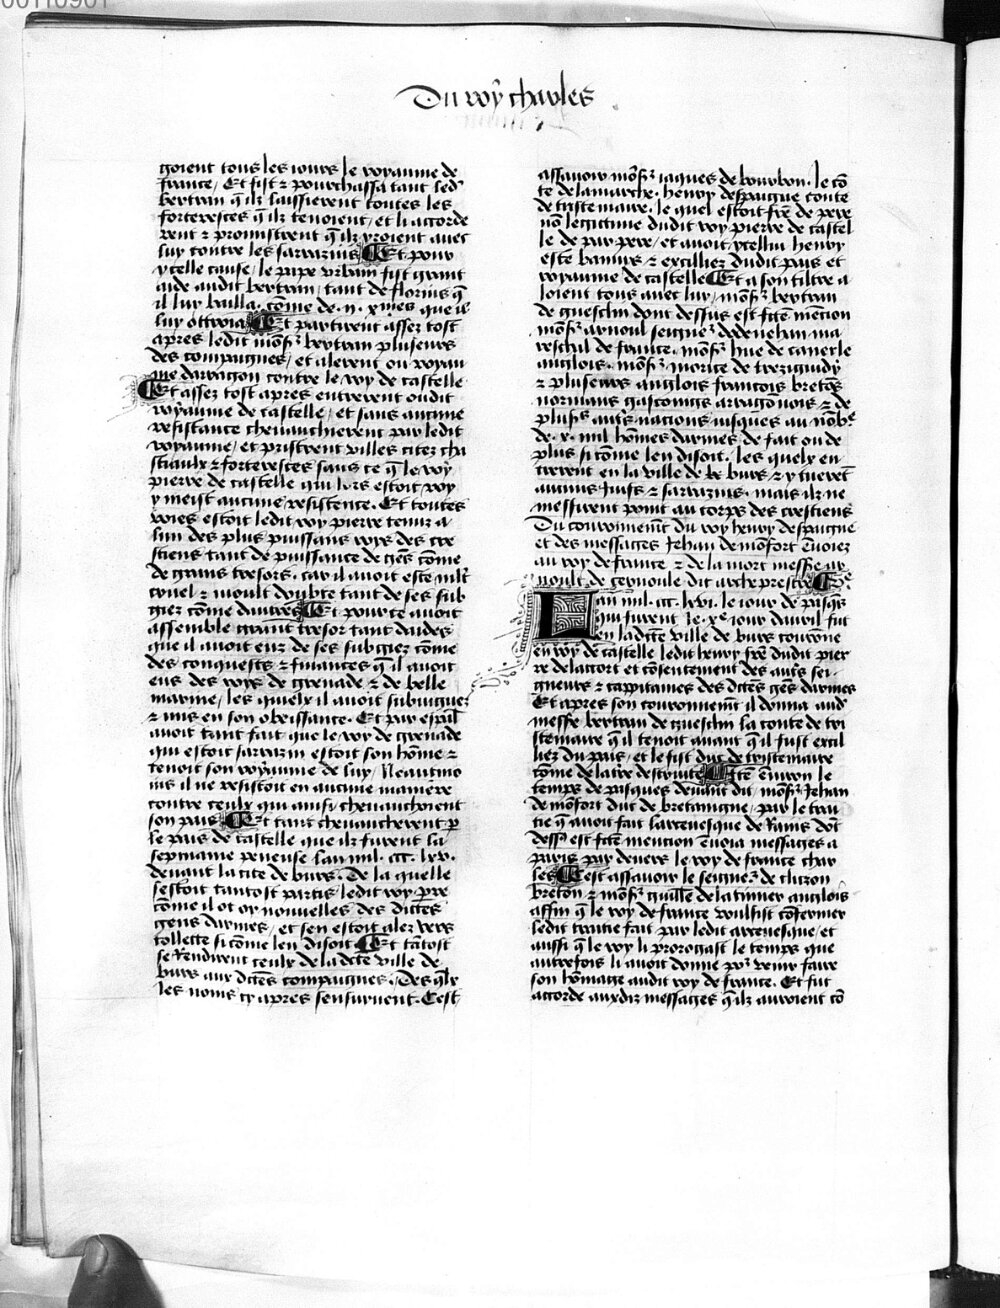 00110901
Du roy charles
goient tous les iours le royaume de
france / Et fist ⁊ pourchassa tant led̾
bertran q̃ ilz laissierent toutes les
forteresces q̃ ilz tenoient / et li accorde
rent ⁊ promistrent q̃ ilz yroient auec
luy contre les sarrazins Et pour
ycelle cause / le pape vrbain fist grant
aide audit bertran / tant de florins q̃
il luy bailla. cõme de .ij. xmes que il
luy ottroia Et partirent assez tost
apres ledit mõs̾ bertran plusieurs
des compaignes / et alerent ou royau
me darragon contre le roy de castelle
Et assez tost apres entrerent oudit
royaume de castelle / et sans aucune
resistance cheuauchierent par ledit
royaume / et pristrent villes citez cha
stiaulx ⁊ forteresces sans ce q̃ le roy
pierre de castelle qui lors estoit roy
y meist aucune resistence. Et toutes
voies estoit ledit roy pierre tenuz a
lun des plus puissans roys des cre
stiens tant de puissance de gẽs cõme
de grans tresors. car il auoit este ml̾t
cruel ⁊ moult doubte tant de ses sub
giez cõme dautres Et pource auoit
assemble grant tresor tant daides
que il auoit euz de ses subgiez cõme
des conquestz ⁊ finances q̃ il auoit
eus des roys de grenade ⁊ de belle
marine / les quelx il auoit subiuguez
⁊ mis en son obeissance. Et par esp̃al
auoit tant fait que le roy de grenade
qui estoit sarrazin estoit son hõme ⁊
tenoit son royaume de luy / Neantmo
ins il ne resistoit en aucune maniere
contre ceulx qui ainsi cheuauchoient
son pais Et tant cheuaucherent p̱
le pais de castelle que ilz furent la
sepmaine peneuse lan mil. ccc. lxv.
deuant la cite de burs. De la quelle
sestoit tantost partis ledit roy pr̃e
cõme il ot oy nouuelles des dictes
gens darmes / et sen estoit alez vers
tollecte si cõme len disoit Et tãtost
se rendirent ceulx de la dicte ville de
burs aux dictes compaignes. Des qlx̃
les noms cy apres sensuiuent. Cest
assauoir mõs̾ iaques de bourbon. le cõ
te de lamarche. henry despaigne conte
de tristemaire. le quel estoit frẽ de pere
nõ legitime dudit roy pierre de castel
le de par pere / et auoit ycellui henry
este bannis ⁊ excilliez dudit pais et
royaume de castelle Et a son tiltre a
loient tous auec luy / mõs̾ bertran
de gueschn dont dessus est fcẽ mencion
mõs̾ arnoul seigne̾ dedenehan ma
reschal de france. mõs̾ hue de cauerle
anglois. mõs̾ morice de treziguidy
⁊ plusieurs anglois francois bretõs
normans gascoings arragõnois ⁊ de
plus̾ autr̃s nacions iusques au nõb̾e
de .x. mil hõmes darmes de fait ou de
plus si cõme len disoit. les quelx en
trerent en la ville de burs ⁊ y tuerẽt
aucuns iuifs ⁊ sarrazins. mais ilz ne
messirent point au corps des crestiens
Du couronnemẽt du roy henry despaigne
et des messages Jehan de mõfort ẽuoiez
au roy de france ⁊ de la mort messire ar
noult de ceruole dit arche prestre
Lan mil. ccc. lxvi. le iour de pasqs̃
qui furent le .xe. iour dauril fut
en ladicte ville de burs courõne
en roy de castelle ledit henry frẽ dudit pier
re delacort et cõsentement des autr̃s sei
gneurs ⁊ cappitaines des dictes gẽs darmes
Et apres son couronnemẽt il donna aud̾
messre bertran de gueschn la conte de tri
stemaire q̃ il tenoit auant q̃ il fust excil
liez du pais / et le fist duc de tristemaire
cõme de latre destruite Itẽ ẽuiron le
temps de pasques deuant dit / mõs̾ Jehan
de mõfort duc de bretaingne / par le trai
tie q̃ auoit fait larceuesque de Rains dõt
dess̾ est fcẽ mention ẽuoia messages a
paris par deuers le roy de france char
les Cest assauoir le seigne̾ de clizon
breton ⁊ mõs̾ guille de latimer anglois
affin q̃ le roy de france voulsist cõfermer
ledit traitie fait par ledit arceuesque / et
aussi q̃ le roy li prorogast le temps que
autrefois li auoit donne po̾ venir faire
son hõmage audit roy de france. Et fut
accorde auxdiz messages q̃ ilz auroient cõ